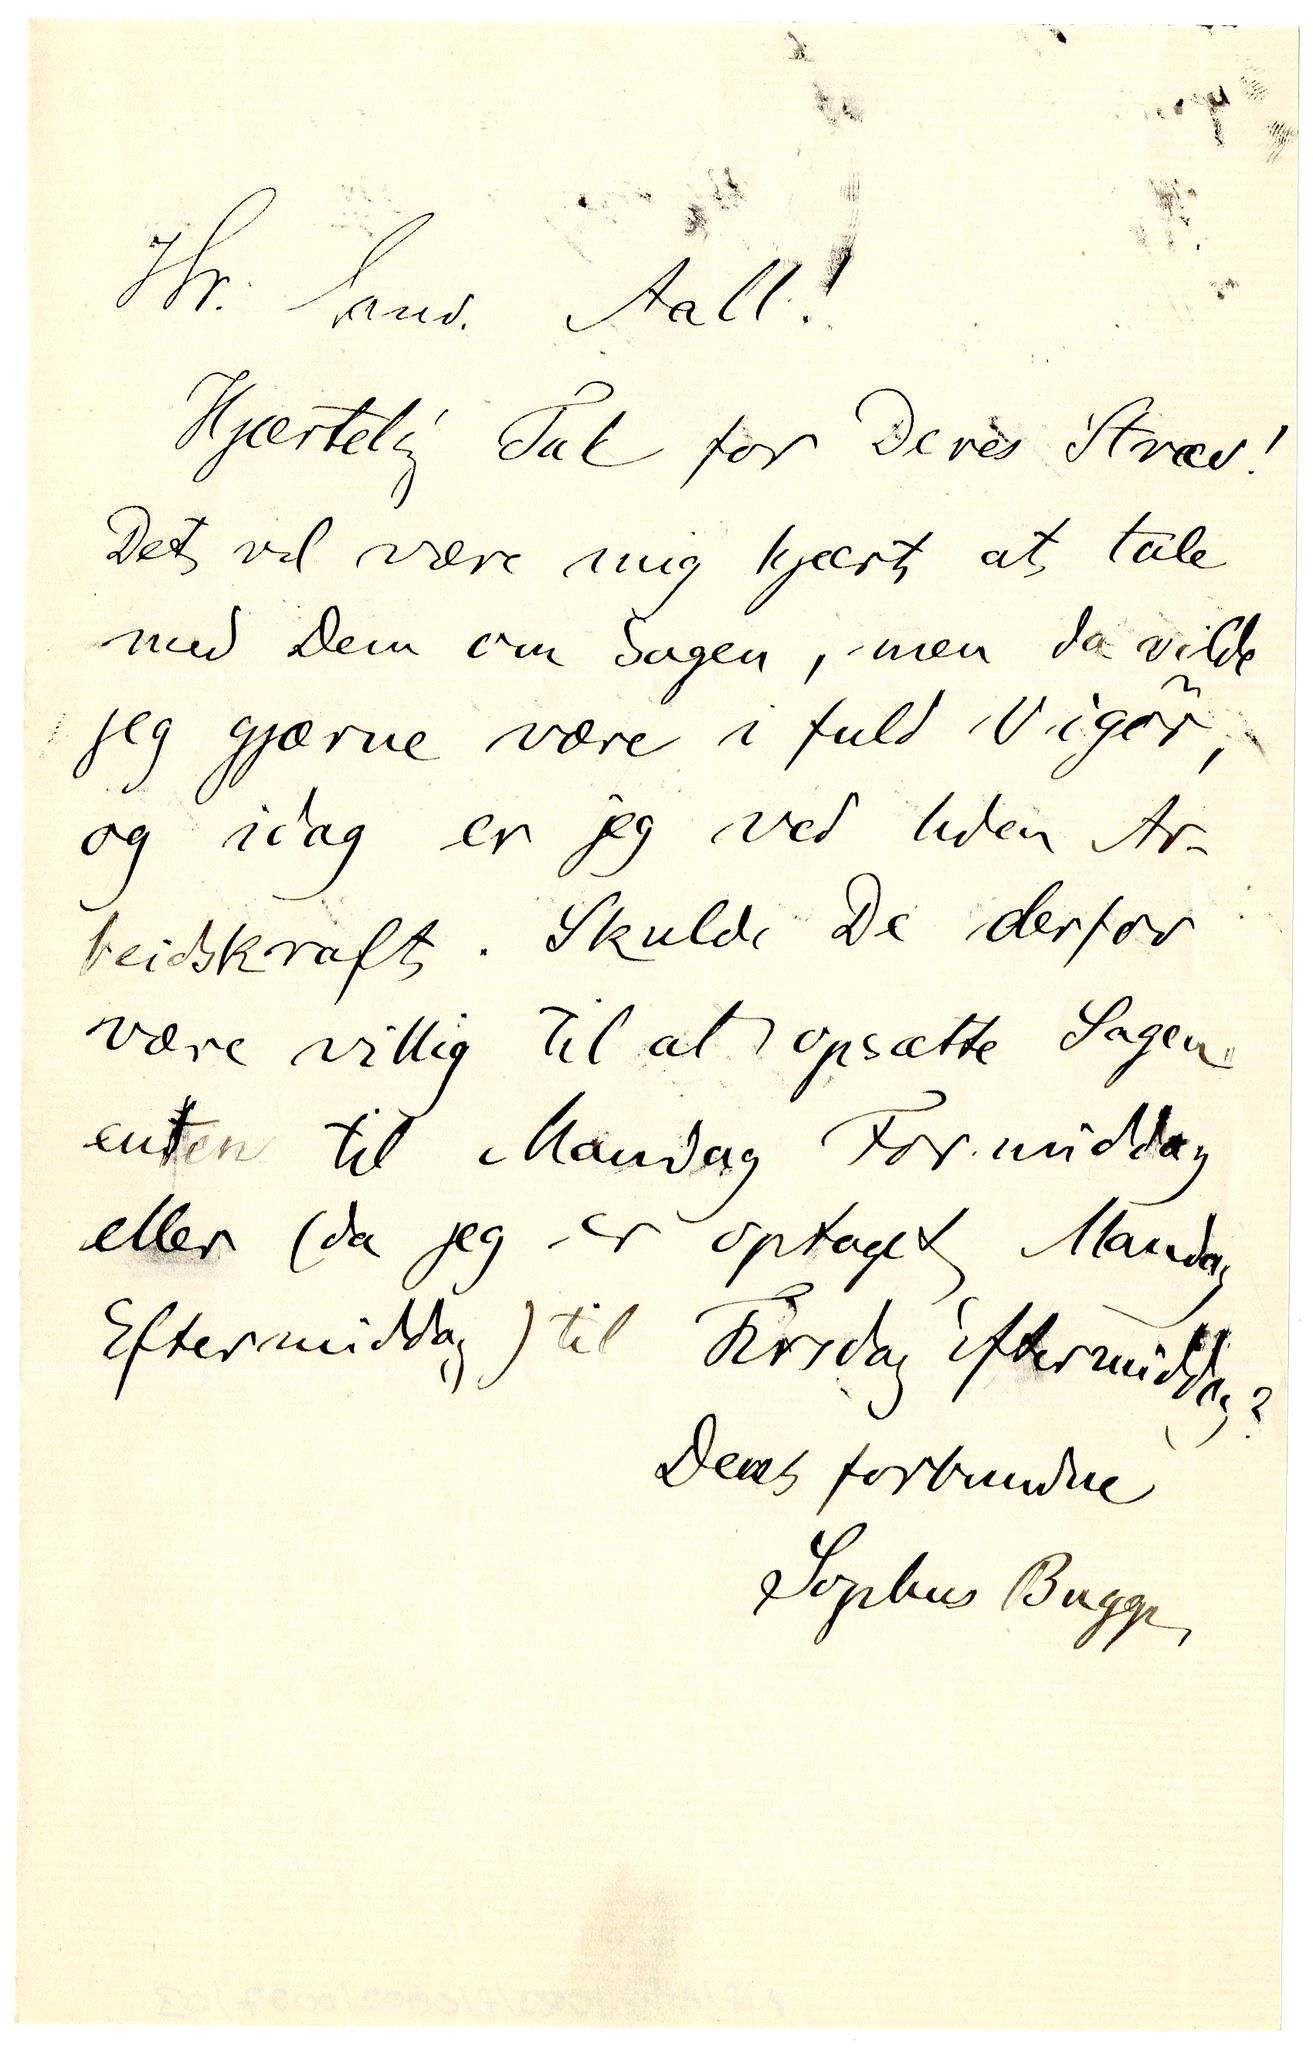 Hr. Cand. Aall!
Hjærtelig Tak for Deres Stræv!
Det vil være mig kjært at tale
med Dem om Sagen, men da vilde
jeg gjærne være i fuld Vigör,
og idag er jeg ved liden Ar-
beidskraft. Skulde De derfor
være villig til at opsætte Sagen
enten til Mandag Formiddag
eller (da jeg er optaget Mandag
Eftermiddag) til Tirsdag Eftermiddag?
Deres forbundne
Sophus Bugge